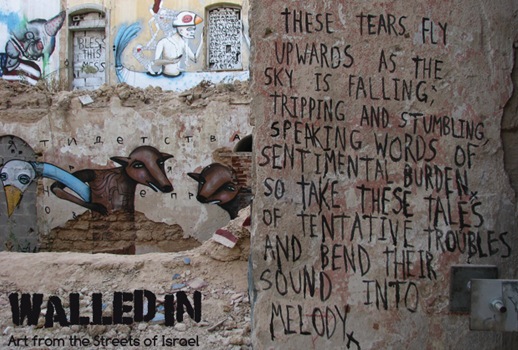 BLESS
THIS
MESS
ТИДЕТСТВА
THESE TEARS FLY
UPWARDS AS THE
SKY IS FALLING,
TRIPPING AND STUMBLING,
SPEAKING WORDS OF
SENTIMENTAL BURDEN,
SO TAKE THESE TALES
OF TENTATIVE TROUBLES
AND BEND THEIR
SOUND INTO
MELODY
WALLED IN
Art from the Streets of Israel